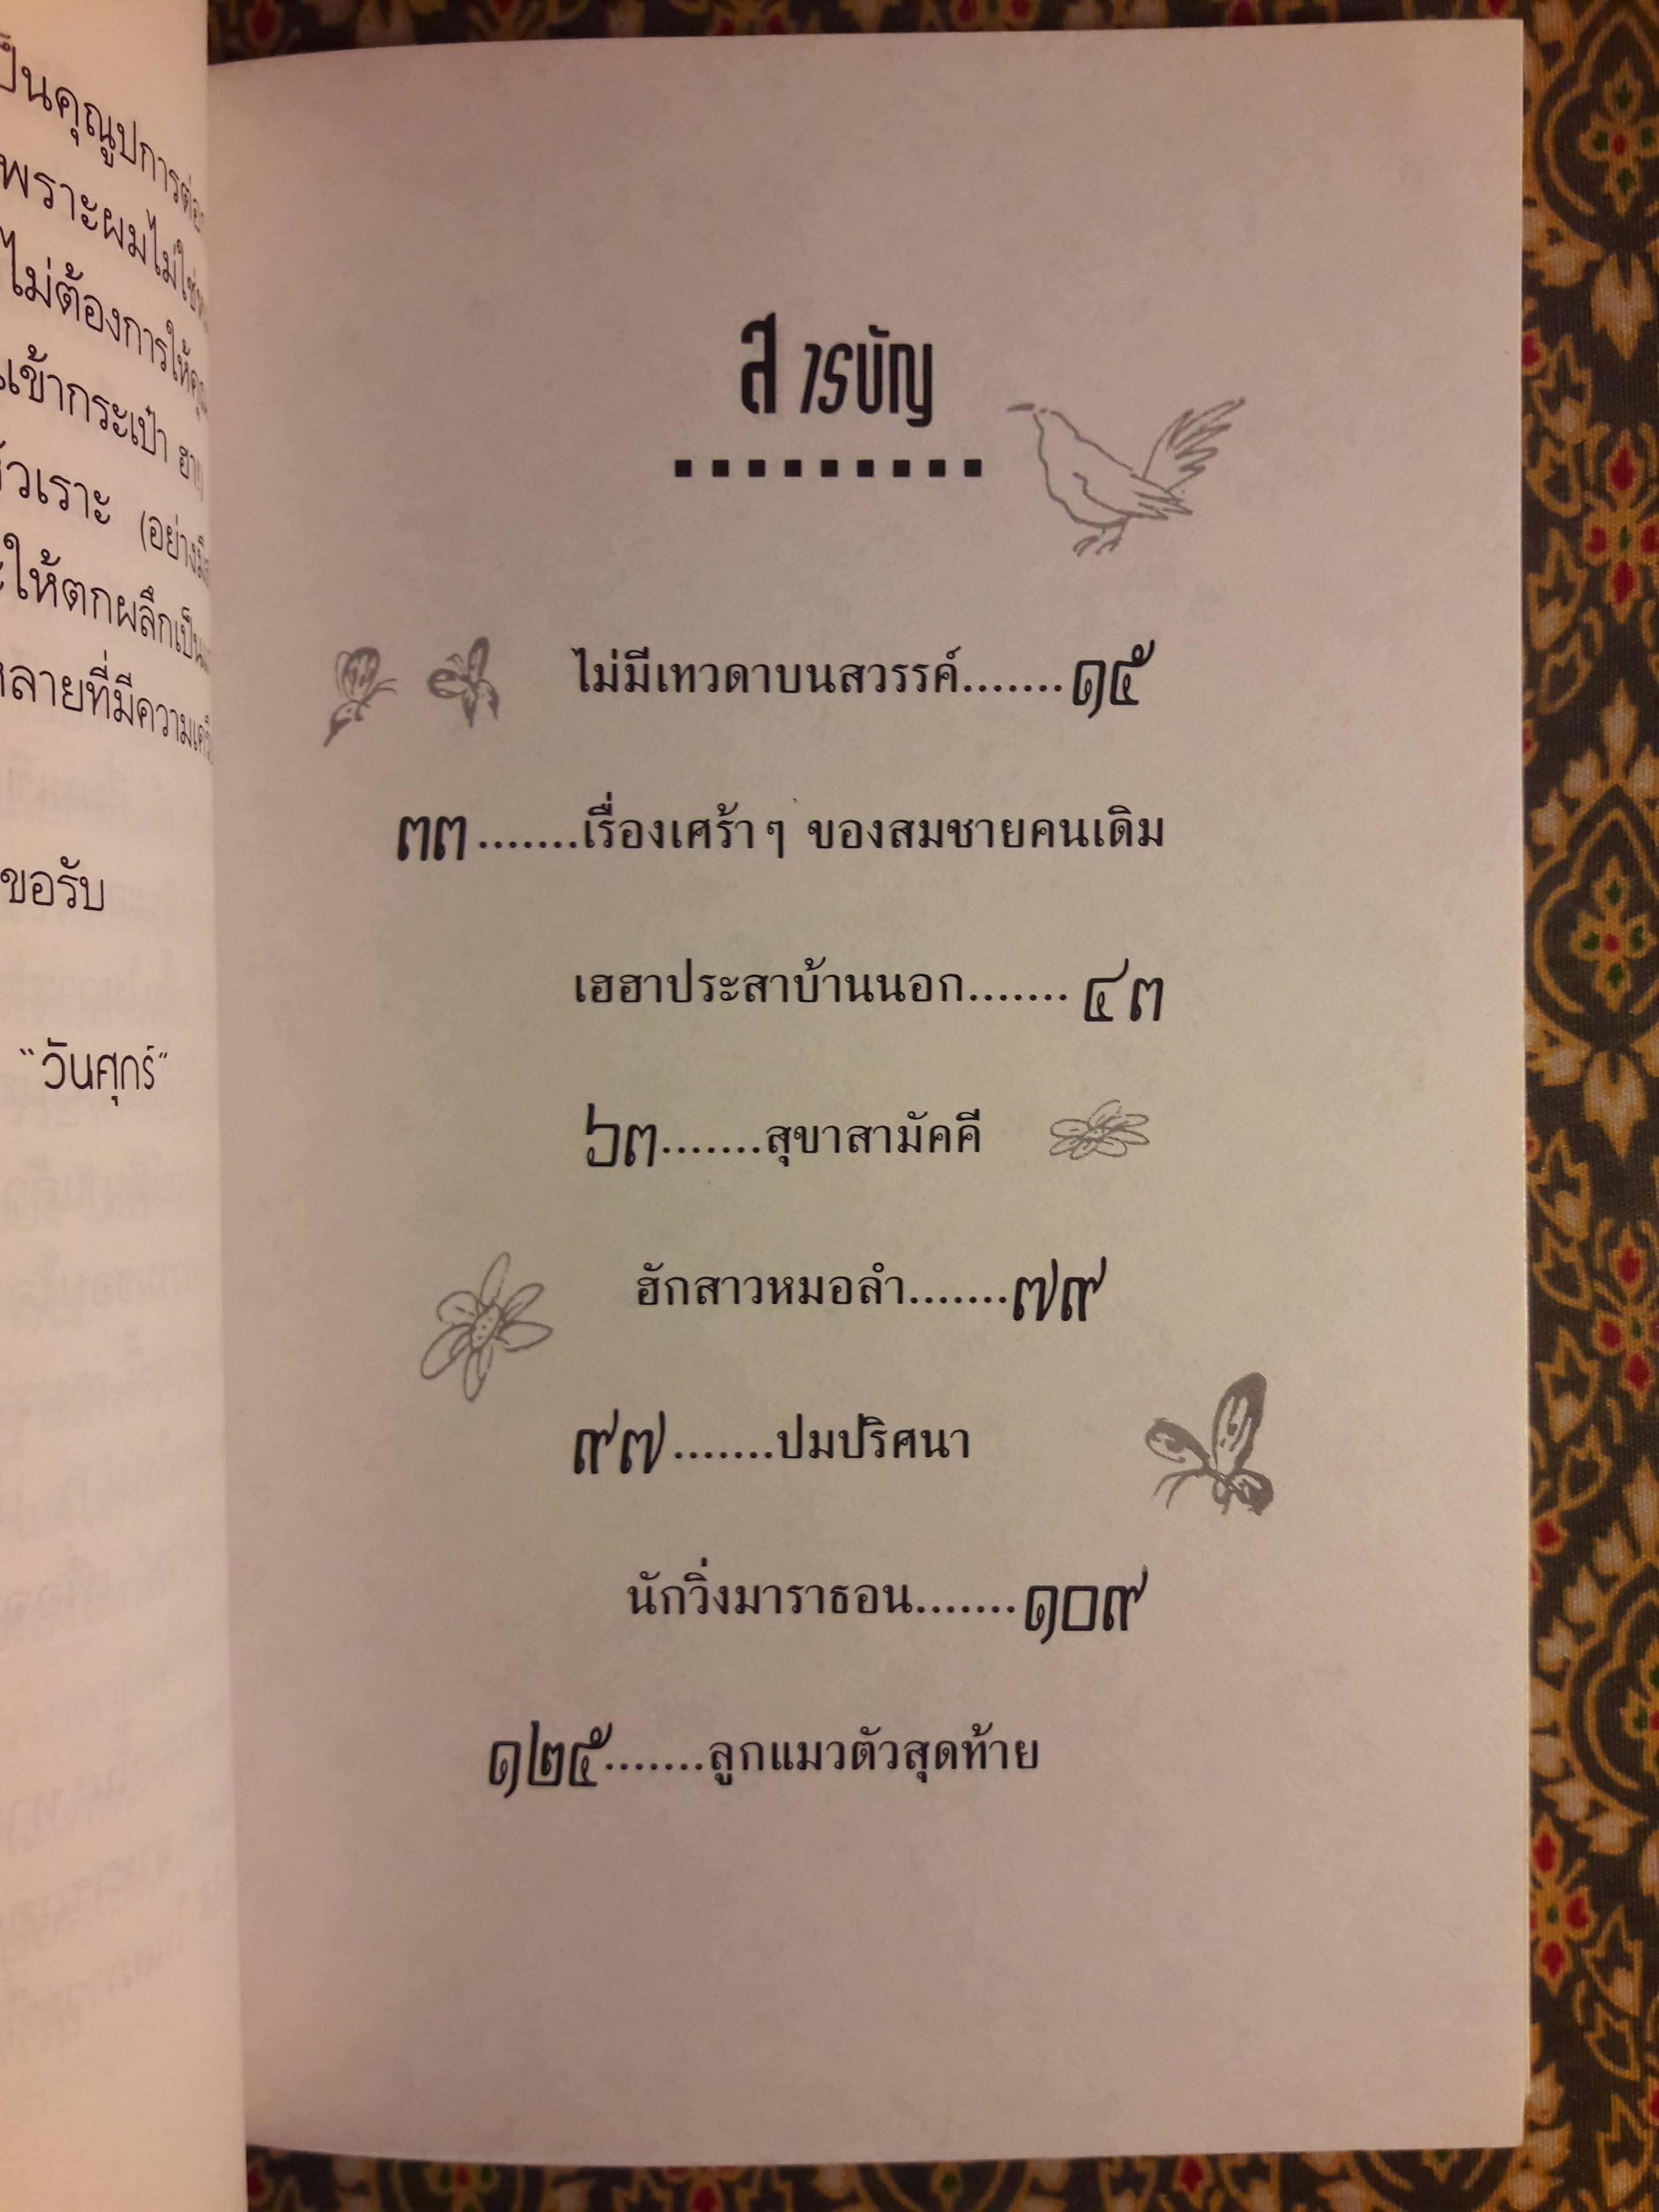 ป็นคุณูปการต่อ
พราะผมไม่ใช่
ไม่ต้องการให้คุณ
เข้ากระเป๋า
ัวเราะ (อย่างมี
ให้ตกผลึกเป็น
หลายที่มีความ
ขอรับ
"วันศุกร์"
สารบัญ
ไม่มีเทวดาบนสวรรค์.......๑๕
๓๓.......เรื่องเศร้าๆ ของสมชายคนเดิม
เฮฮาประสาบ้านนอก.......๔๓
๖๓.......สุขาสามัคคี
ฮักสาวหมอลำ.......๗๙
๙๗.......ปมปริศนา
นักวิ่งมาราธอน.......๑๐๙
๑๒๕.......ลูกแมวตัวสุดท้าย